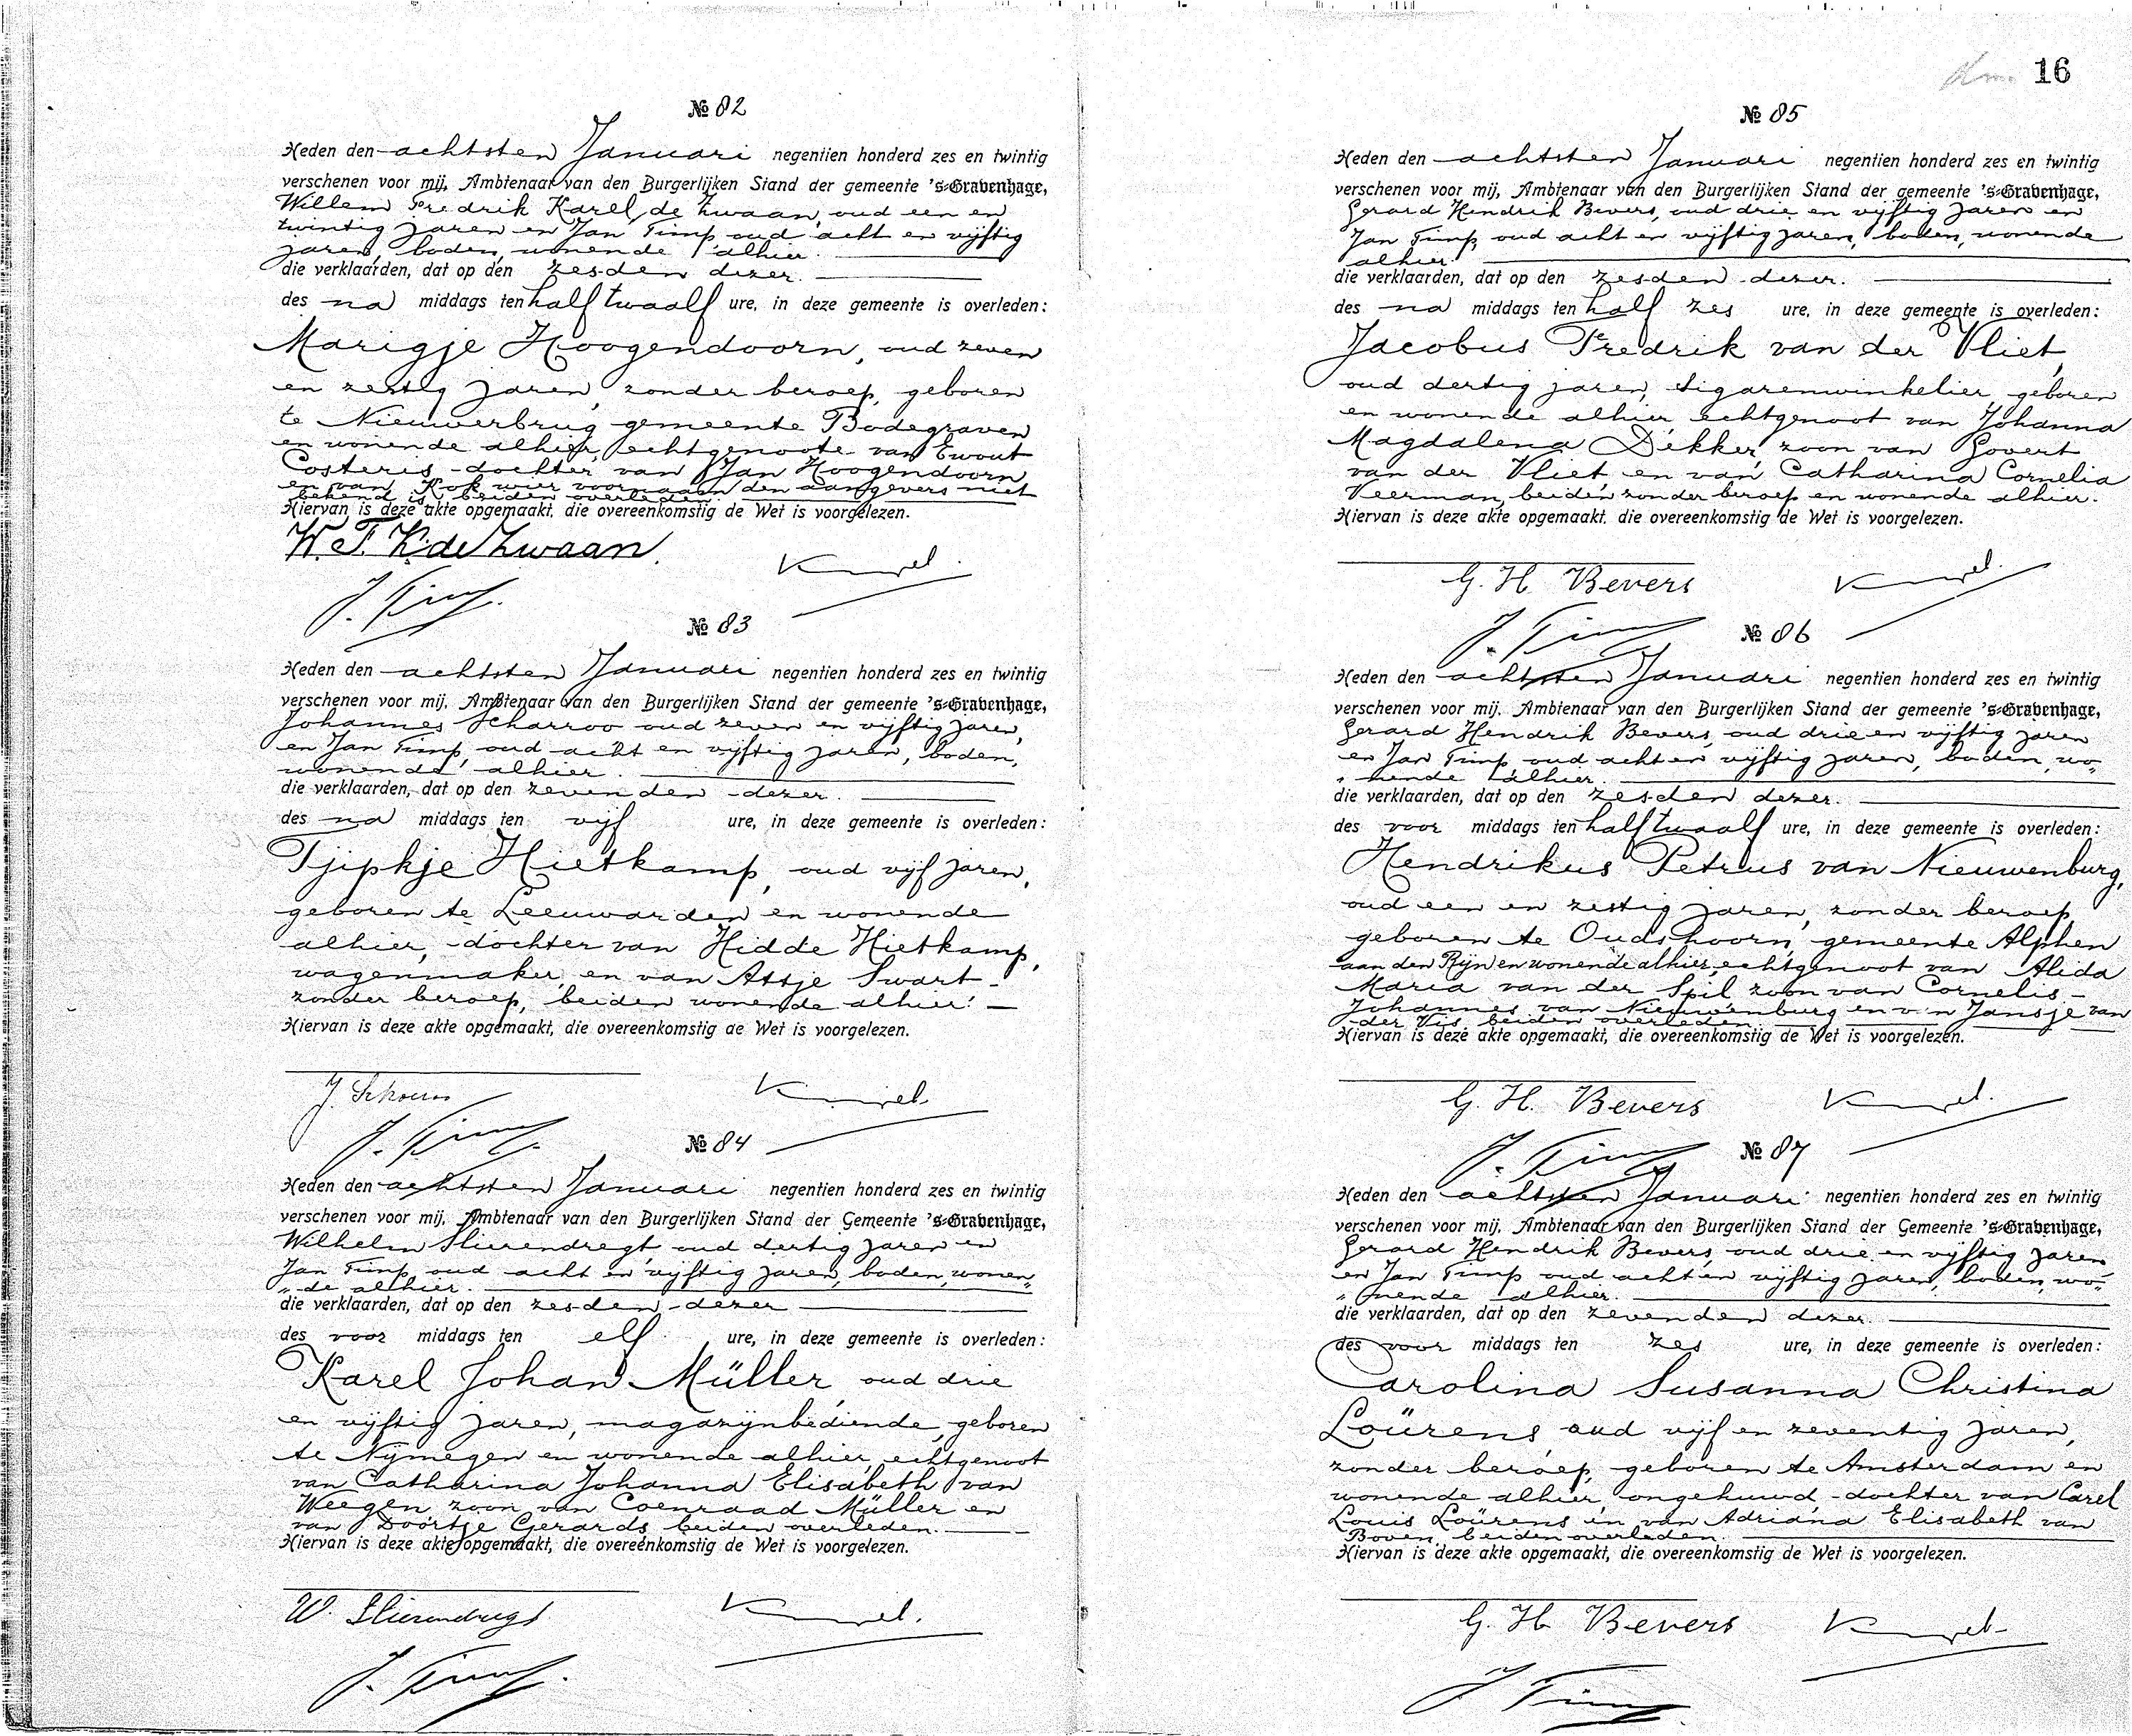 16
№ 82
Heden den achtsten Januari negentien honderd zes en twintig
verschenen voor mij, Ambtenaar van den Burgerlijken Stand der gemeente 's-Gravenhage,
Willem Fredrik Karel de Zwaan, oud een en
twintig jaren en Jan Timp oud acht en vijftig
jaren, boden, wonende alhier.
die verklaarden, dat op den zesden dezer.
des na middags ten half twaalf ure, in deze gemeente is overleden:
Marigje Hoogendoorn, oud zeven
en zestig jaren, zonder beroep, geboren
te Nieuwerbrug gemeente Bodegraven
en wonende alhier, echtgenoote van Ewout
Costeris dochter van Jan Hoogendoorn
en van Kok wier voornaam den aangevers niet
bekend is, beiden overleden.
Hiervan is deze akte opgemaakt, die overeenkomstig de Wet is voorgelezen.
W. F. K. de Zwaan.
J. Timp.
№ 83
Heden den achtsten Januari negentien honderd zes en twintig
verschenen voor mij, Ambtenaar van den Burgerlijken Stand der gemeente 's-Gravenhage,
Johannes Scharroo oud zeven en vijftig jaren,
en Jan Timp, oud acht en vijftig jaren, boden,
wonende alhier.
die verklaarden, dat op den zevenden dezer.
des na middags ten vijf ure, in deze gemeente is overleden:
Tjipkje Hietkamp, oud vijf jaren,
geboren te Leeuwarden en wonende
alhier, dochter van Hidde Hietkamp,
wagenmaker, en van Attje Swart
zonder beroep, beiden wonende alhier.
Hiervan is deze akte opgemaakt, die overeenkomstig de Wet is voorgelezen.
J. Timp.
№ 84
Heden den achtsten Januari negentien honderd zes en twintig
verschenen voor mij, Ambtenaar van den Burgerlijken Stand der Gemeente 's-Gravenhage,
Wilhelm Slierendregt oud dertig jaren en
Jan Timp oud acht en vijftig jaren, boden, wonen„
„de alhier.
die verklaarden, dat op den zesden dezer
des voor middags ten elf ure, in deze gemeente is overleden:
Karel Johan Müller, oud drie
en vijftig jaren, magazijnbediende, geboren
te Nijmegen en wonende alhier, echtgenoot
van Catharina Johanna Elisabeth van
Weegen, zoon van Coenraad Müller en
van Doortje Gerards, beiden overleden.
Hiervan is deze akte opgemaakt, die overeenkomstig de Wet is voorgelezen.
W. Slierendregt
J. Timp.
№ 85
Heden den achtsten Januari negentien honderd zes en twintig
verschenen voor mij, Ambtenaar van den Burgerlijken Stand der gemeente 's-Gravenhage,
Gerard Hendrik Bevers, oud drie en vijftig jaren en
Jan Timp, oud acht en vijftig jaren, boden, wonende
alhier.
die verklaarden, dat op den zesden dezer.
des na middags ten half zes ure, in deze gemeente is overleden:
Jacobus Fredrik van der Vliet,
oud dertig jaren, sigarenwinkelier, geboren
en wonende alhier echtgenoot van Johanna
Magdalena Dekker, zoon van Govert
van der Vliet, en van Catharina Cornelia
Veerman, beiden zonder beroep en wonende alhier.
Hiervan is deze akte opgemaakt, die overeenkomstig de Wet is voorgelezen.
G. H. Bevers
J. Timp
№ 86
Heden den achtsten Januari negentien honderd zes en twintig
verschenen voor mij, Ambtenaar van den Burgerlijken Stand der gemeente 's-Gravenhage,
Gerard Hendrik Bevers, oud drie en vijftig jaren
en Jan Timp, oud acht en vijftig jaren, boden, wo„
„nende alhier.
die verklaarden, dat op den zesden dezer.
des voor middags ten half twaalf ure, in deze gemeente is overleden:
Hendrikus Petrus van Nieuwenburg,
oud een en zestig jaren, zonder beroep,
geboren te Oudshoorn, gemeente Alphen
aan den Rijn en wonende alhier, echtgenoot van Alida
Maria van der Spil zoon van Cornelis
Johannes van Nieuwenburg en van Jansje van
der Vis, beiden overleden
Hiervan is deze akte opgemaakt, die overeenkomstig de Wet is voorgelezen.
G. H. Bevers
J. Timp
№ 87
Heden den achtsten Januari negentien honderd zes en twintig
verschenen voor mij, Ambtenaar van den Burgerlijken Stand der Gemeente 's-Gravenhage,
Gerard Hendrik Bevers, oud drie en vijftig jaren
en Jan Timp oud acht en vijftig jaren, boden, wo„
„nende alhier.
die verklaarden, dat op den zevenden dezer.
des voor middags ten zes ure, in deze gemeente is overleden:
Carolina Susanna Christina
Loürens, oud vijf en zeventig jaren,
zonder beroep, geboren te Amsterdam en
wonende alhier, ongehuwd, dochter van Carel
Louis Loürens en van Adriana Elisabeth van
Boven, beiden overleden.
Hiervan is deze akte opgemaakt, die overeenkomstig de Wet is voorgelezen.
G. H. Bevers
J. Timp